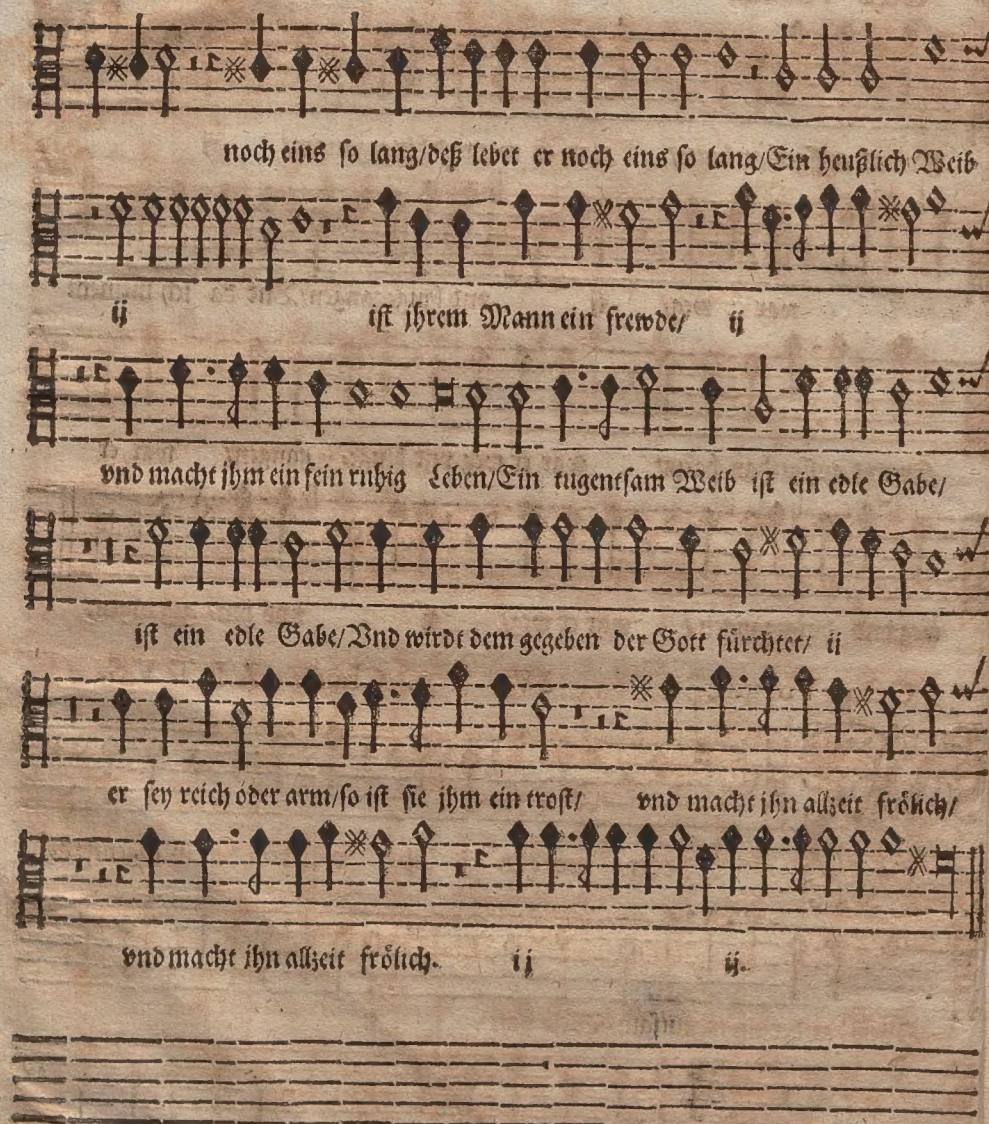 noch eins so lang/deß lebet er noch eins so lang/Ein heußlich Weib
ij ist jhrem Mann ein frewde/ ij
vnd macht jhm ein fein ruhig Leben/Ein tugentsam Weib ist ein edle Gabe/
ist ein edle Gabe/Vnd wirdt dem gegeben der Gott fürchtet/ ij
er sey reich oder arm/so ist sie jhm ein trost/ vnd macht jhn allzeit frölich/
vnd macht jhn allzeit frölich. ij ij.